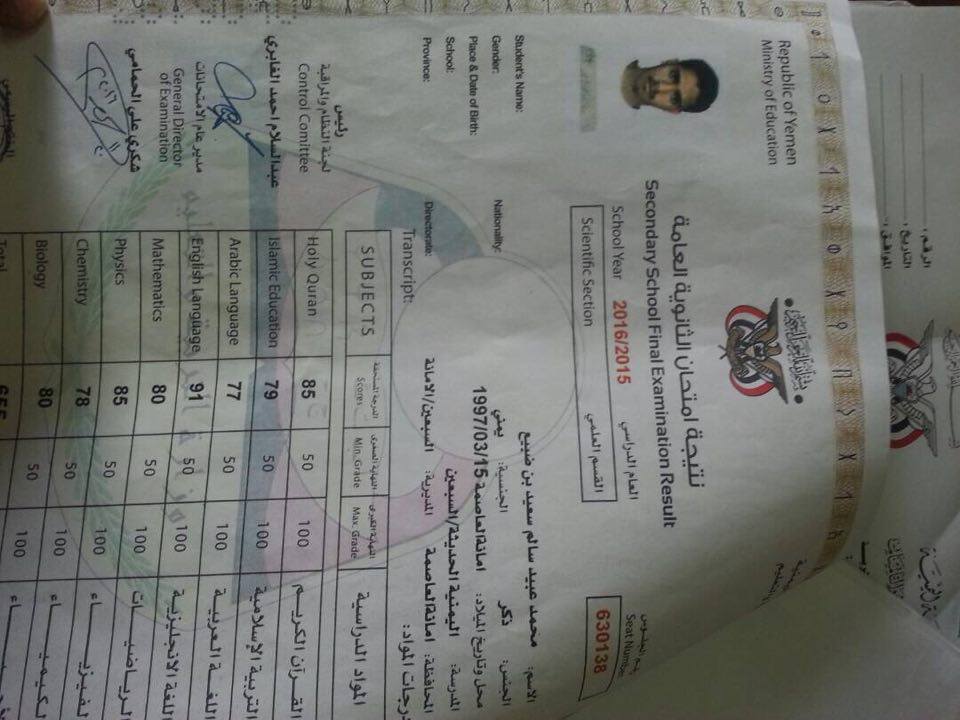 Republic of Yemen
Ministry of Education
نتيجة امتحان الثانوية العامة
Secondary School Final Examination Result
School Year 2016/2015 العام الدراسي
Scientific Section القسم العلمي
رقم الجلوس
Seat Number
630138
Student's Name: محمد عبيد سالم سعيد بن ضبيع الاسم:
Gender: Nationality: يمني الجنسية: ذكر الجنس:
Place & Date of Birth: 1997/03/15 امانة العاصمة محل وتاريخ الميلاد:
School: اليمنية الحديثة/السبعين المدرسة:
Province: Directorate: السبعين/الامانة المديرية: امانة العاصمة المحافظة:
Transcript: درجات المواد:
SUBJECTS الدرجة المستحقة Scores النهاية الصغرى Min. Grade النهاية الكبرى Max. Grade المواد الدراسية
Holy Quran 85 50 100 القرآن الكريم
Islamic Education 79 50 100 التربية الإسلامية
Arabic Language 77 50 100 اللغة العربية
English Language 91 50 100 اللغة الانجليزية
Mathematics 80 50 100 الرياضيات
Physics 85 50 100 الفيزياء
Chemistry 78 50 100 الكيمياء
Biology 80 50 100
Total 655
رئيس
لجنة النظام والمراقبة
Control Comittee
عبدالسلام احمد
مدير عام الامتحانات
General Director
of Examination
شكري علي الحمامي
الرقم:
التاريخ: